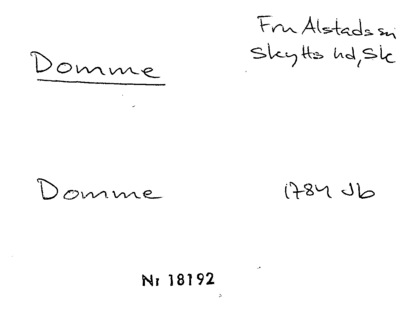 Domme
Fru Alstads sn
Skytts hd, Sk
Domme 1784 Jb
Nr 18192